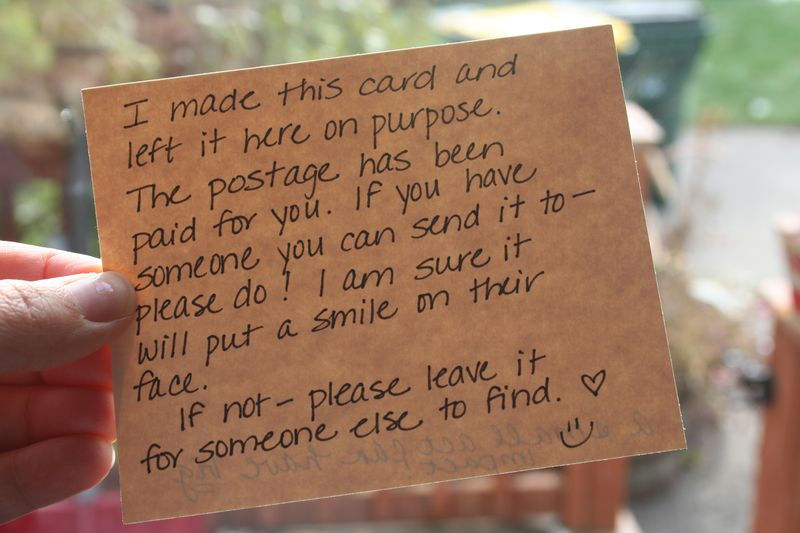 I made this card and
left it here on purpose.
The postage has been
paid for you. If you have
someone you can send it to-
please do! I am sure it
will put a smile on their
face.
If not - please leave it
for someone else to find. ♡